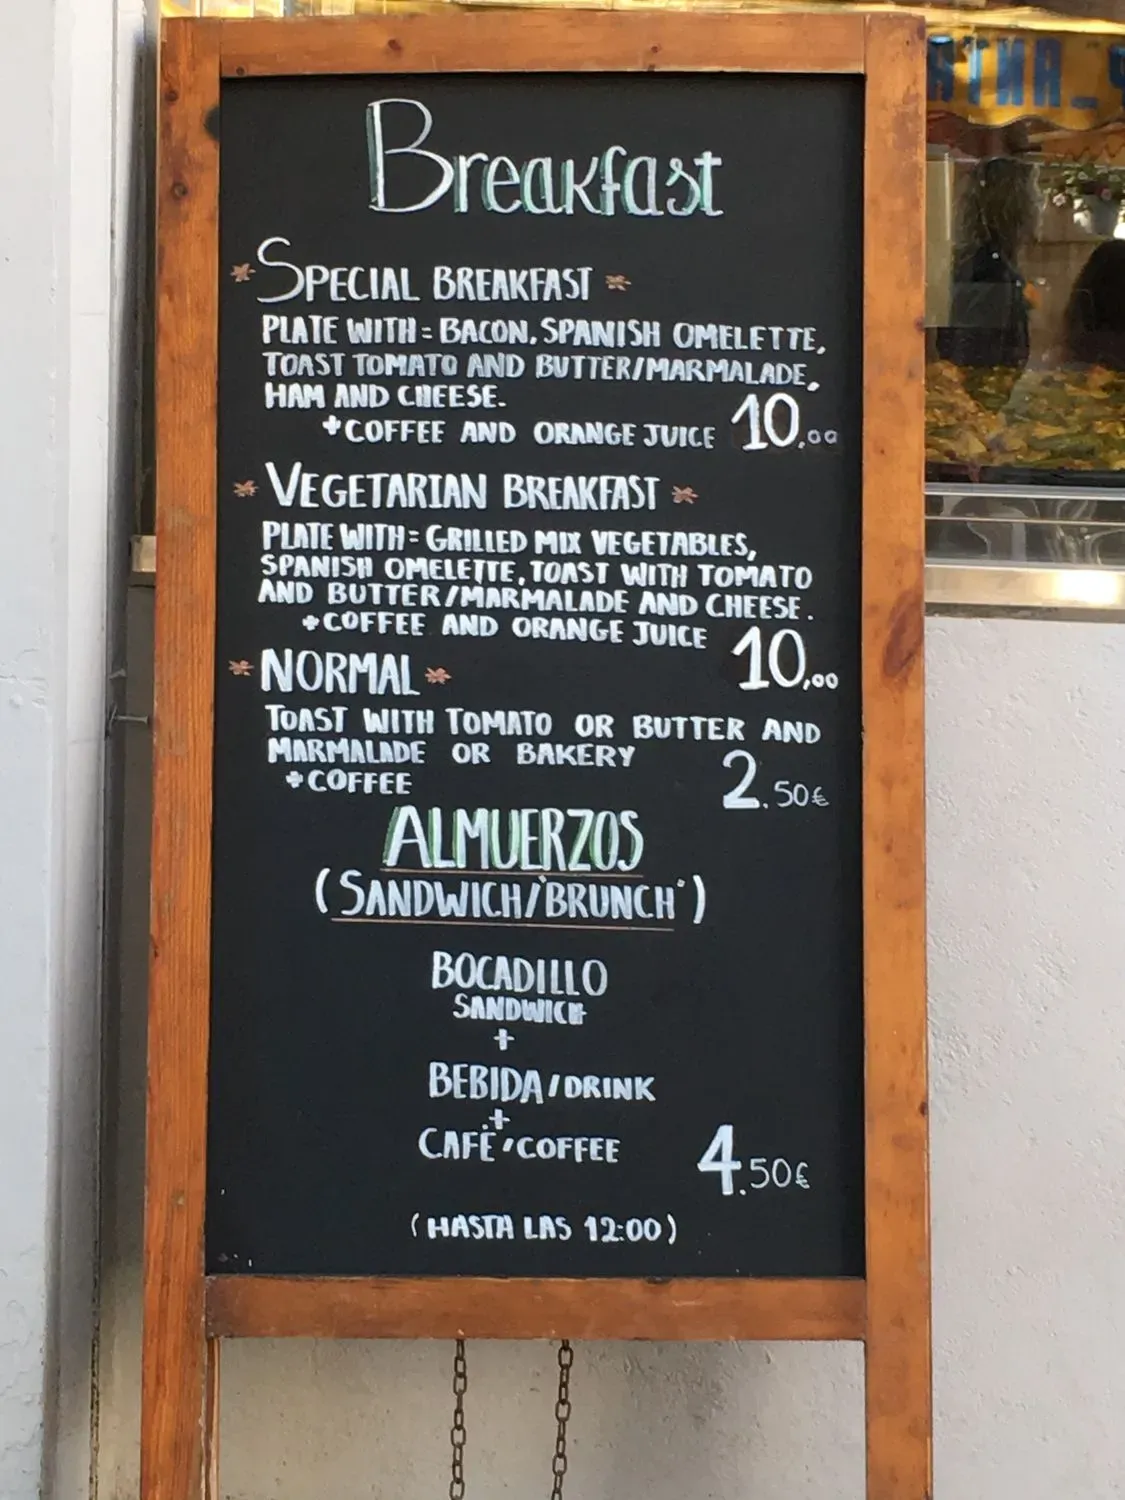 Breakfast
SPECIAL BREAKFAST
PLATE WITH = BACON, SPANISH OMELETTE,
TOAST TOMATO AND BUTTER/MARMALADE,
HAM AND CHEESE.
+COFFEE AND ORANGE JUICE 10,00
VEGETARIAN BREAKFAST
PLATE WITH = GRILLED MIX VEGETABLES,
SPANISH OMELETTE, TOAST WITH TOMATO
AND BUTTER/MARMALADE AND CHEESE.
+COFFEE AND ORANGE JUICE 10,00
NORMAL
TOAST WITH TOMATO OR BUTTER AND
MARMALADE OR BAKERY
+COFFEE 2.50€
ALMUERZOS
(SANDWICH/"BRUNCH")
BOCADILLO
SANDWICH
+
BEBIDA/DRINK
+
CAFÉ/COFFEE 4.50€
(HASTA LAS 12:00)